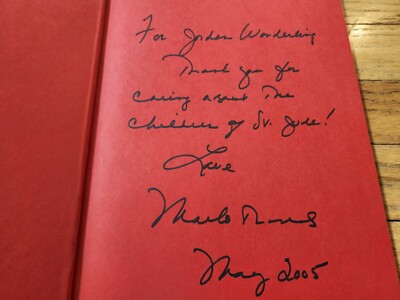 For Jordan Wonderling
Thank you for
caring about The
children of St. Jude!
Love
Marlo Thomas
May 2005